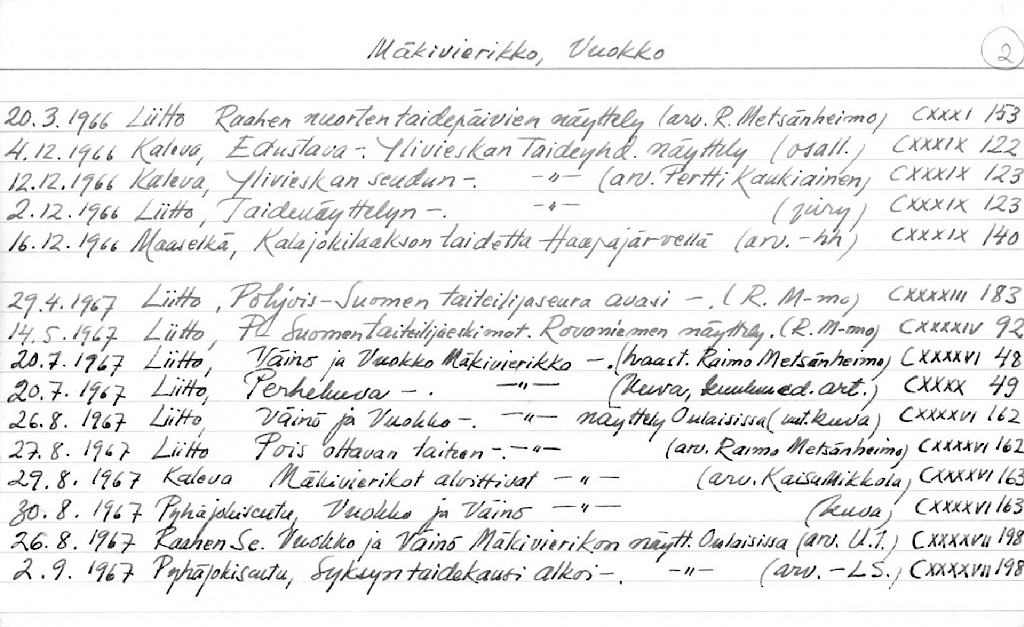 Mäkivierikko, Vuokko 2
20.3.1966 Liitto Raahen nuorten taidepäivien näyttely (arv. R. Metsänheimo) CXXXI 153
4.12.1966 Kaleva, Edustava -. Ylivieskan Taideyhd. näyttely (osall.) CXXXIX 122
12.12.1966 Kaleva, Ylivieskan seudun -. -"- (arv. Pertti Kaukiainen) CXXXIX 123
2.12.1966 Liitto, Taidenäyttelyn -. -"- (jury) CXXXIX 123
16.12.1966 Maaselkä, Kalajokilaakson taidetta Haapajärvellä (arv. - hh) CXXXIX 140
29.4.1967 Liitto, Pohjois-Suomen taiteilijaseura avasi -. (R. M-mo) CXXXXIII 183
14.5.1967 Liitto, Suomen taiteilijaeskimot. Rovaniemen näyttely. (R. M-mo) CXXXXIV 92
20.7.1967 Liitto, Väinö ja Vuokko Mäkivierikko -. (haast. Raimo Metsänheimo) CXXXXVI 48
20.7.1967 Liitto, Perhekuva -. -"- (kuva, kuuluu ed. art.) CXXXX 49
26.8.1967 Liitto, Väinö ja Vuokko -. -"- näyttely Oulaisissa (kuva) CXXXXVI 162
27.8.1967 Liitto Pois ottavan taiteen -. -"- (arv. Raimo Metsänheimo) CXXXXVI 162
29.8.1967 Kaleva Mäkivierikot alvittivat -"- (arv. Kaisu Mikkola) CXXXXVI 163
30.8.1967 Pyhäjokiseutu, Vuokko ja Väinö -"- (kuva) CXXXXVI 163
26.8.1967 Raahen Se. Vuokko ja Väinö Mäkivierikon näytt. Oulaisissa (arv. U.T.) CXXXXVII 198
2.9.1967 Pyhäjokiseutu, Syksyn taidekausi alkoi -. -"- (arv. - LS.) CXXXXVII 198